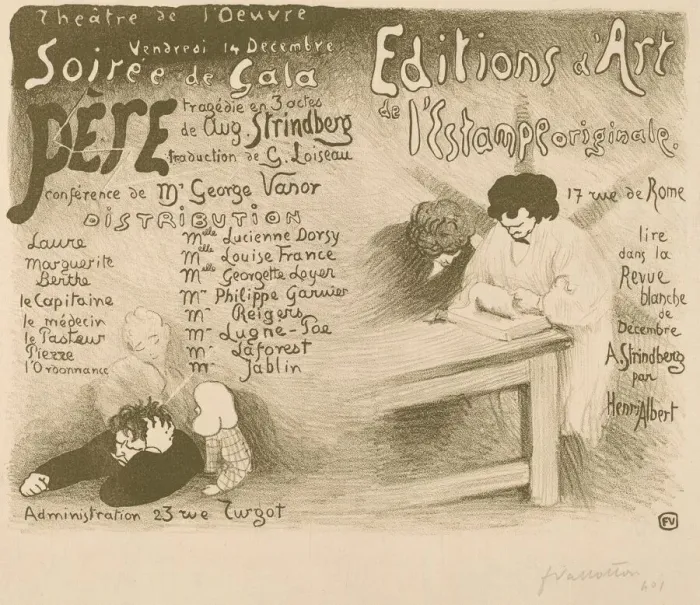 Théâtre de l'Oeuvre
Vendredi 14 Decembre
Soirée de Gala
PÈRE
tragédie en 3 actes
de Aug. Strindberg
traduction de G. Loiseau
conférence de Mr George Vanor
DISTRIBUTION
Laure Melle Lucienne Dorsy
Marguerite Melle Louise France
Berthe Melle Georgette Loyer
le Capitaine Mr Philippe Garnier
le médecin Mr Reigers
le Pasteur Mr Lugne-Poe
Pierre Mr Laforest
l'Ordonnance Mr Jablin
Administration 23 rue Turgot
Editions d'Art
de l'Estampe originale.
17 rue de Rome
lire
dans la
Revue
blanche
de
Decembre
A. Strindberg
par
Henri Albert
FV
f Vallotton